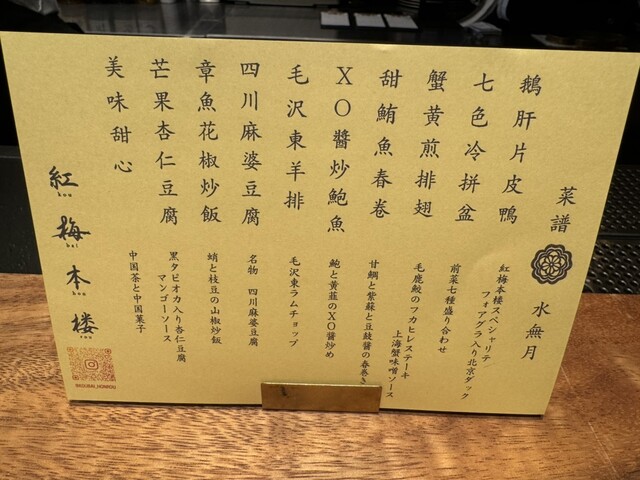 菜譜 水無月
鵝肝片皮鴨
紅梅本楼スペシャリテ/
フォアグラ入り北京ダック
七色冷拼盆
前菜七種盛り合わせ
蟹黄煎排翅
毛鹿鮫のフカヒレステーキ
上海蟹味噌ソース
甜鮹魚春巻
甘鯛と紫蘇と豆鼓醤の春巻き
XO醬炒鮑魚
鮑と黄韮のXO醤炒め
毛沢東羊排
毛沢東ラムチョップ
四川麻婆豆腐
名物 四川麻婆豆腐
章魚花椒炒飯
蛸と枝豆の山椒炒飯
芒果杏仁豆腐
黒タピオカ入り杏仁豆腐
マンゴーソース
美味甜心
中国茶と中国菓子
紅梅本楼
kou
bai
hon
rou